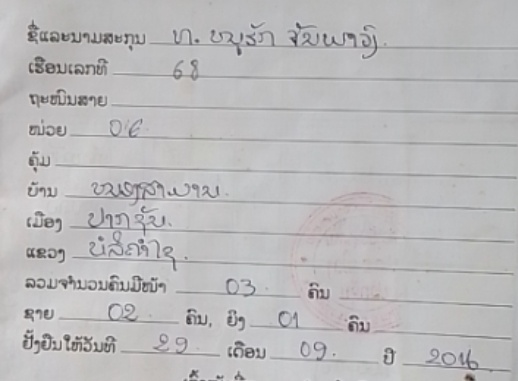 ຊື່ແລະນາມສະກຸນ ທ. ບຸນຮັກ ຈັນພາວົງ
ເຮືອນເລກທີ 68
ຖະໜົນສາຍ
ໜ່ວຍ 06
ຄຸ້ມ
ບ້ານ
ເມືອງ ປາກຊັນ.
ແຂວງ ບໍລິຄຳໄຊ.
ລວມຈຳນວນຄົນມີໜ້າ 03 ຄົນ
ຊາຍ 02 ຄົນ, ຍິງ 01 ຄົນ
ຢັ້ງຢືນໃຫ້ວັນທີ 29 ເດືອນ 09. ປີ 2016